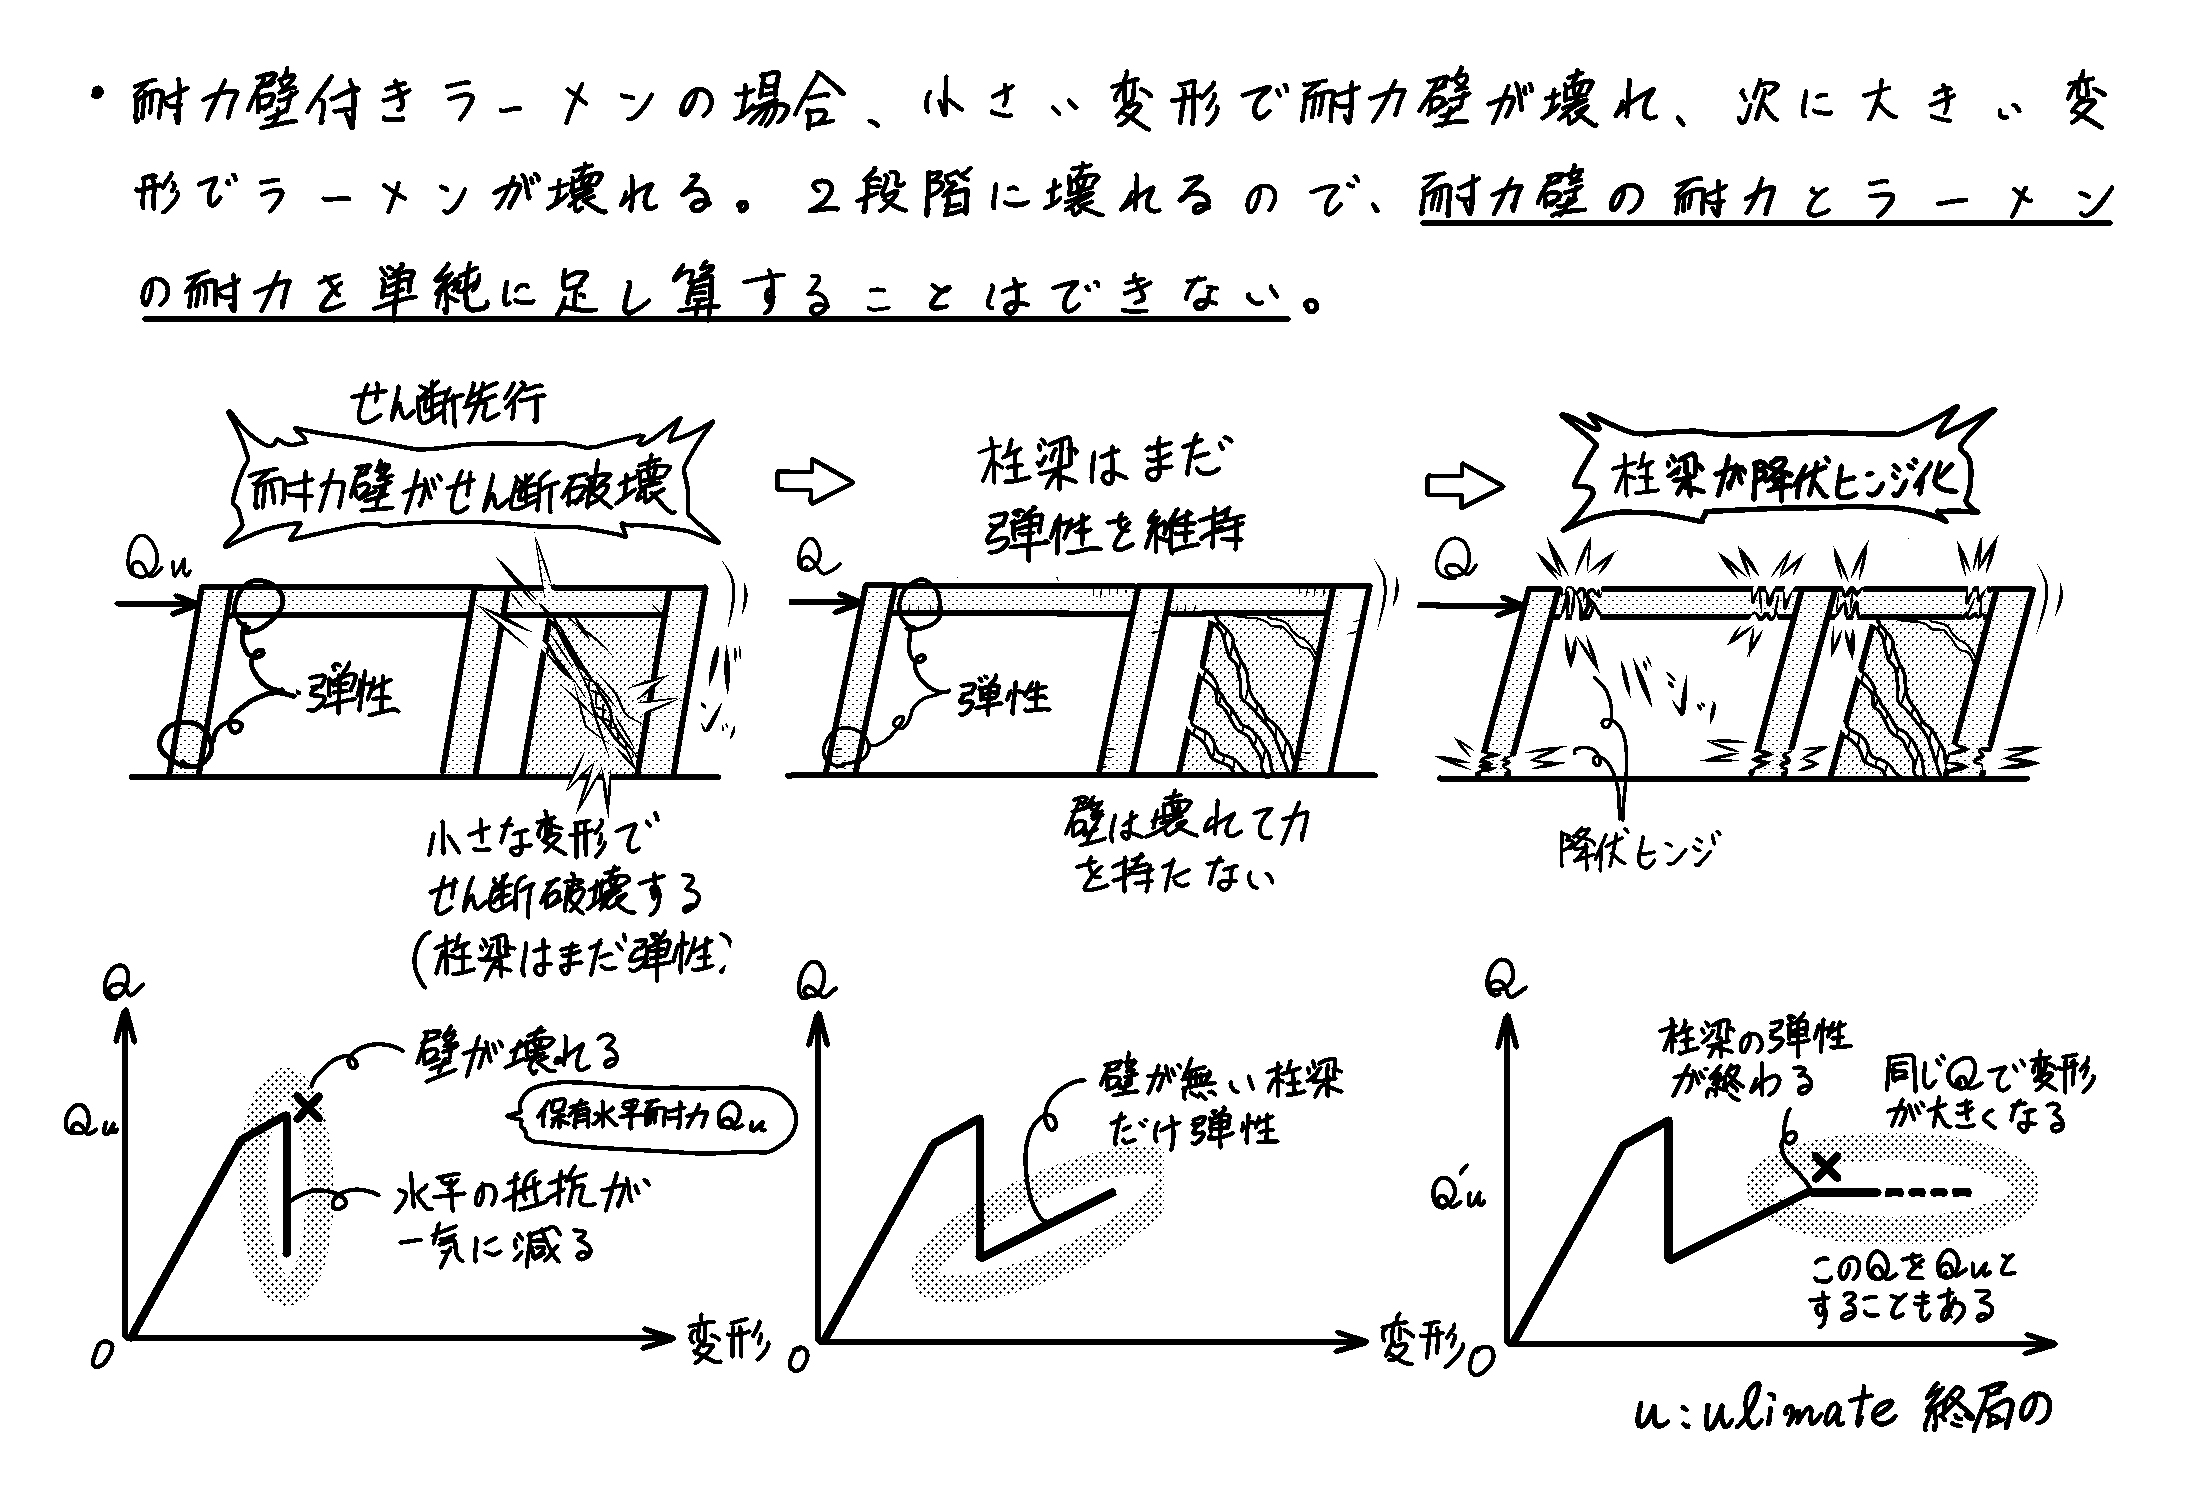 ・耐力壁付きラーメンの場合、小さい変形で耐力壁が壊れ、次に大きい変
形でラーメンが壊れる。2段階に壊れるので、耐力壁の耐力とラーメン
の耐力を単純に足し算することはできない。
せん断先行
耐力壁がせん断破壊
柱梁はまだ
弾性を維持
柱梁が降伏ヒンジ化
Qu
Q
Q
弾性
バン
弾性
バン
小さな変形で
せん断破壊する
(柱梁はまだ弾性)
壁は壊れて力
を持たない
降伏ヒンジ
Q
Qu
壁が壊れる
保有水平耐力Qu
水平の抵抗が
一気に減る
0
変形
Q
壁が無い柱梁
だけ弾性
0
変形
Q
柱梁の弾性
が終わる
同じQで変形
が大きくなる
Q'u
このQをQuと
することもある
0
u:ulimate 終局の